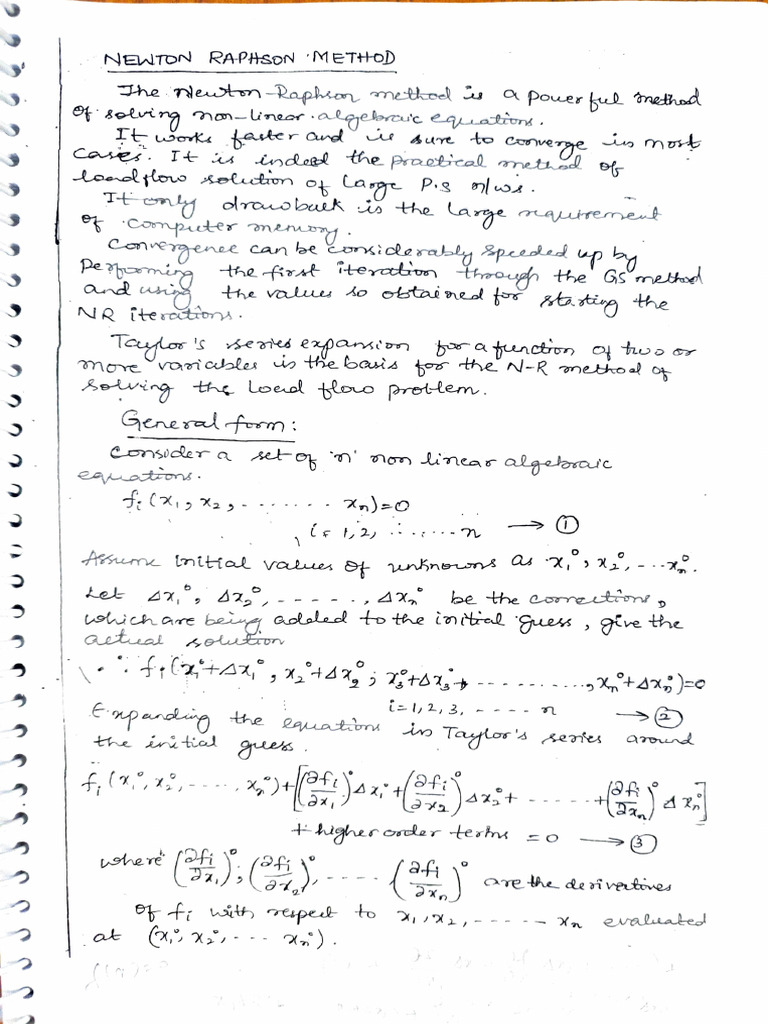 NEWTON RAPHSON METHOD
The Newton-Raphson method is a powerful method
of solving non-linear algebraic equations.
It works faster and is sure to converge in most
cases. It is indeed the practical method of
loadflow solution of large P.S n/ws.
It only drawback is the large requirement
of computer memory.
Convergence can be considerably speeded up by
Performing the first iteration through the GS method
and using the values so obtained for starting the
NR iterations.
Taylor's series expansion for a function of two or
more variables is the basis for the N-R method of
solving the load flow problem.
General form:
Consider a set of 'n' non linear algebraic
equations.
fᵢ(x₁, x₂, ........ xₙ)=0
i= 1, 2, ....... n → ①
Assume initial values of unknowns as x₁°, x₂°, ...xₙ°.
Let Δx₁°, Δx₂°, ------, Δxₙ° be the corrections,
which are being added to the initial guess, give the
actual solution
∴ fᵢ(x₁°+Δx₁°, x₂°+Δx₂°, x₃°+Δx₃°, ..........., xₙ°+Δxₙ°)=0
i=1, 2, 3, ----- n → ②
Expanding the equations in Taylor's series around
the initial guess.
fᵢ(x₁°, x₂°, ...., xₙ°)+[(∂fᵢ/∂x₁)°Δx₁°+(∂fᵢ/∂x₂)°Δx₂°+ ...... +(∂fᵢ/∂xₙ)°Δxₙ°]
+ higher order terms =0 → ③
where (∂fᵢ/∂x₁)°, (∂fᵢ/∂x₂)°, ..... (∂fᵢ/∂xₙ)° are the derivatives
of fᵢ with respect to x₁, x₂, ------- xₙ evaluated
at (x₁°, x₂°, --- xₙ°).